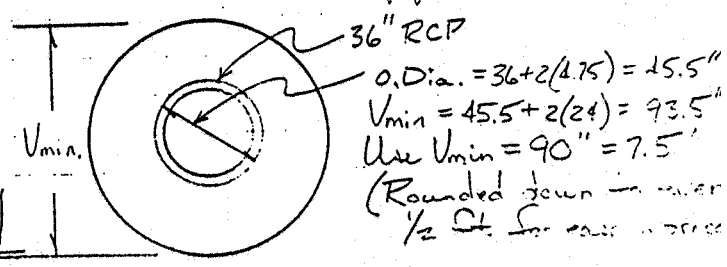 36" RCP
O.Dia. = 36+2(4.75) = 45.5"
Vmin = 45.5+2(24) = 93.5"
Vmin.
Use Vmin = 90" = 7.5'
(Rounded down
1/2 ft. for